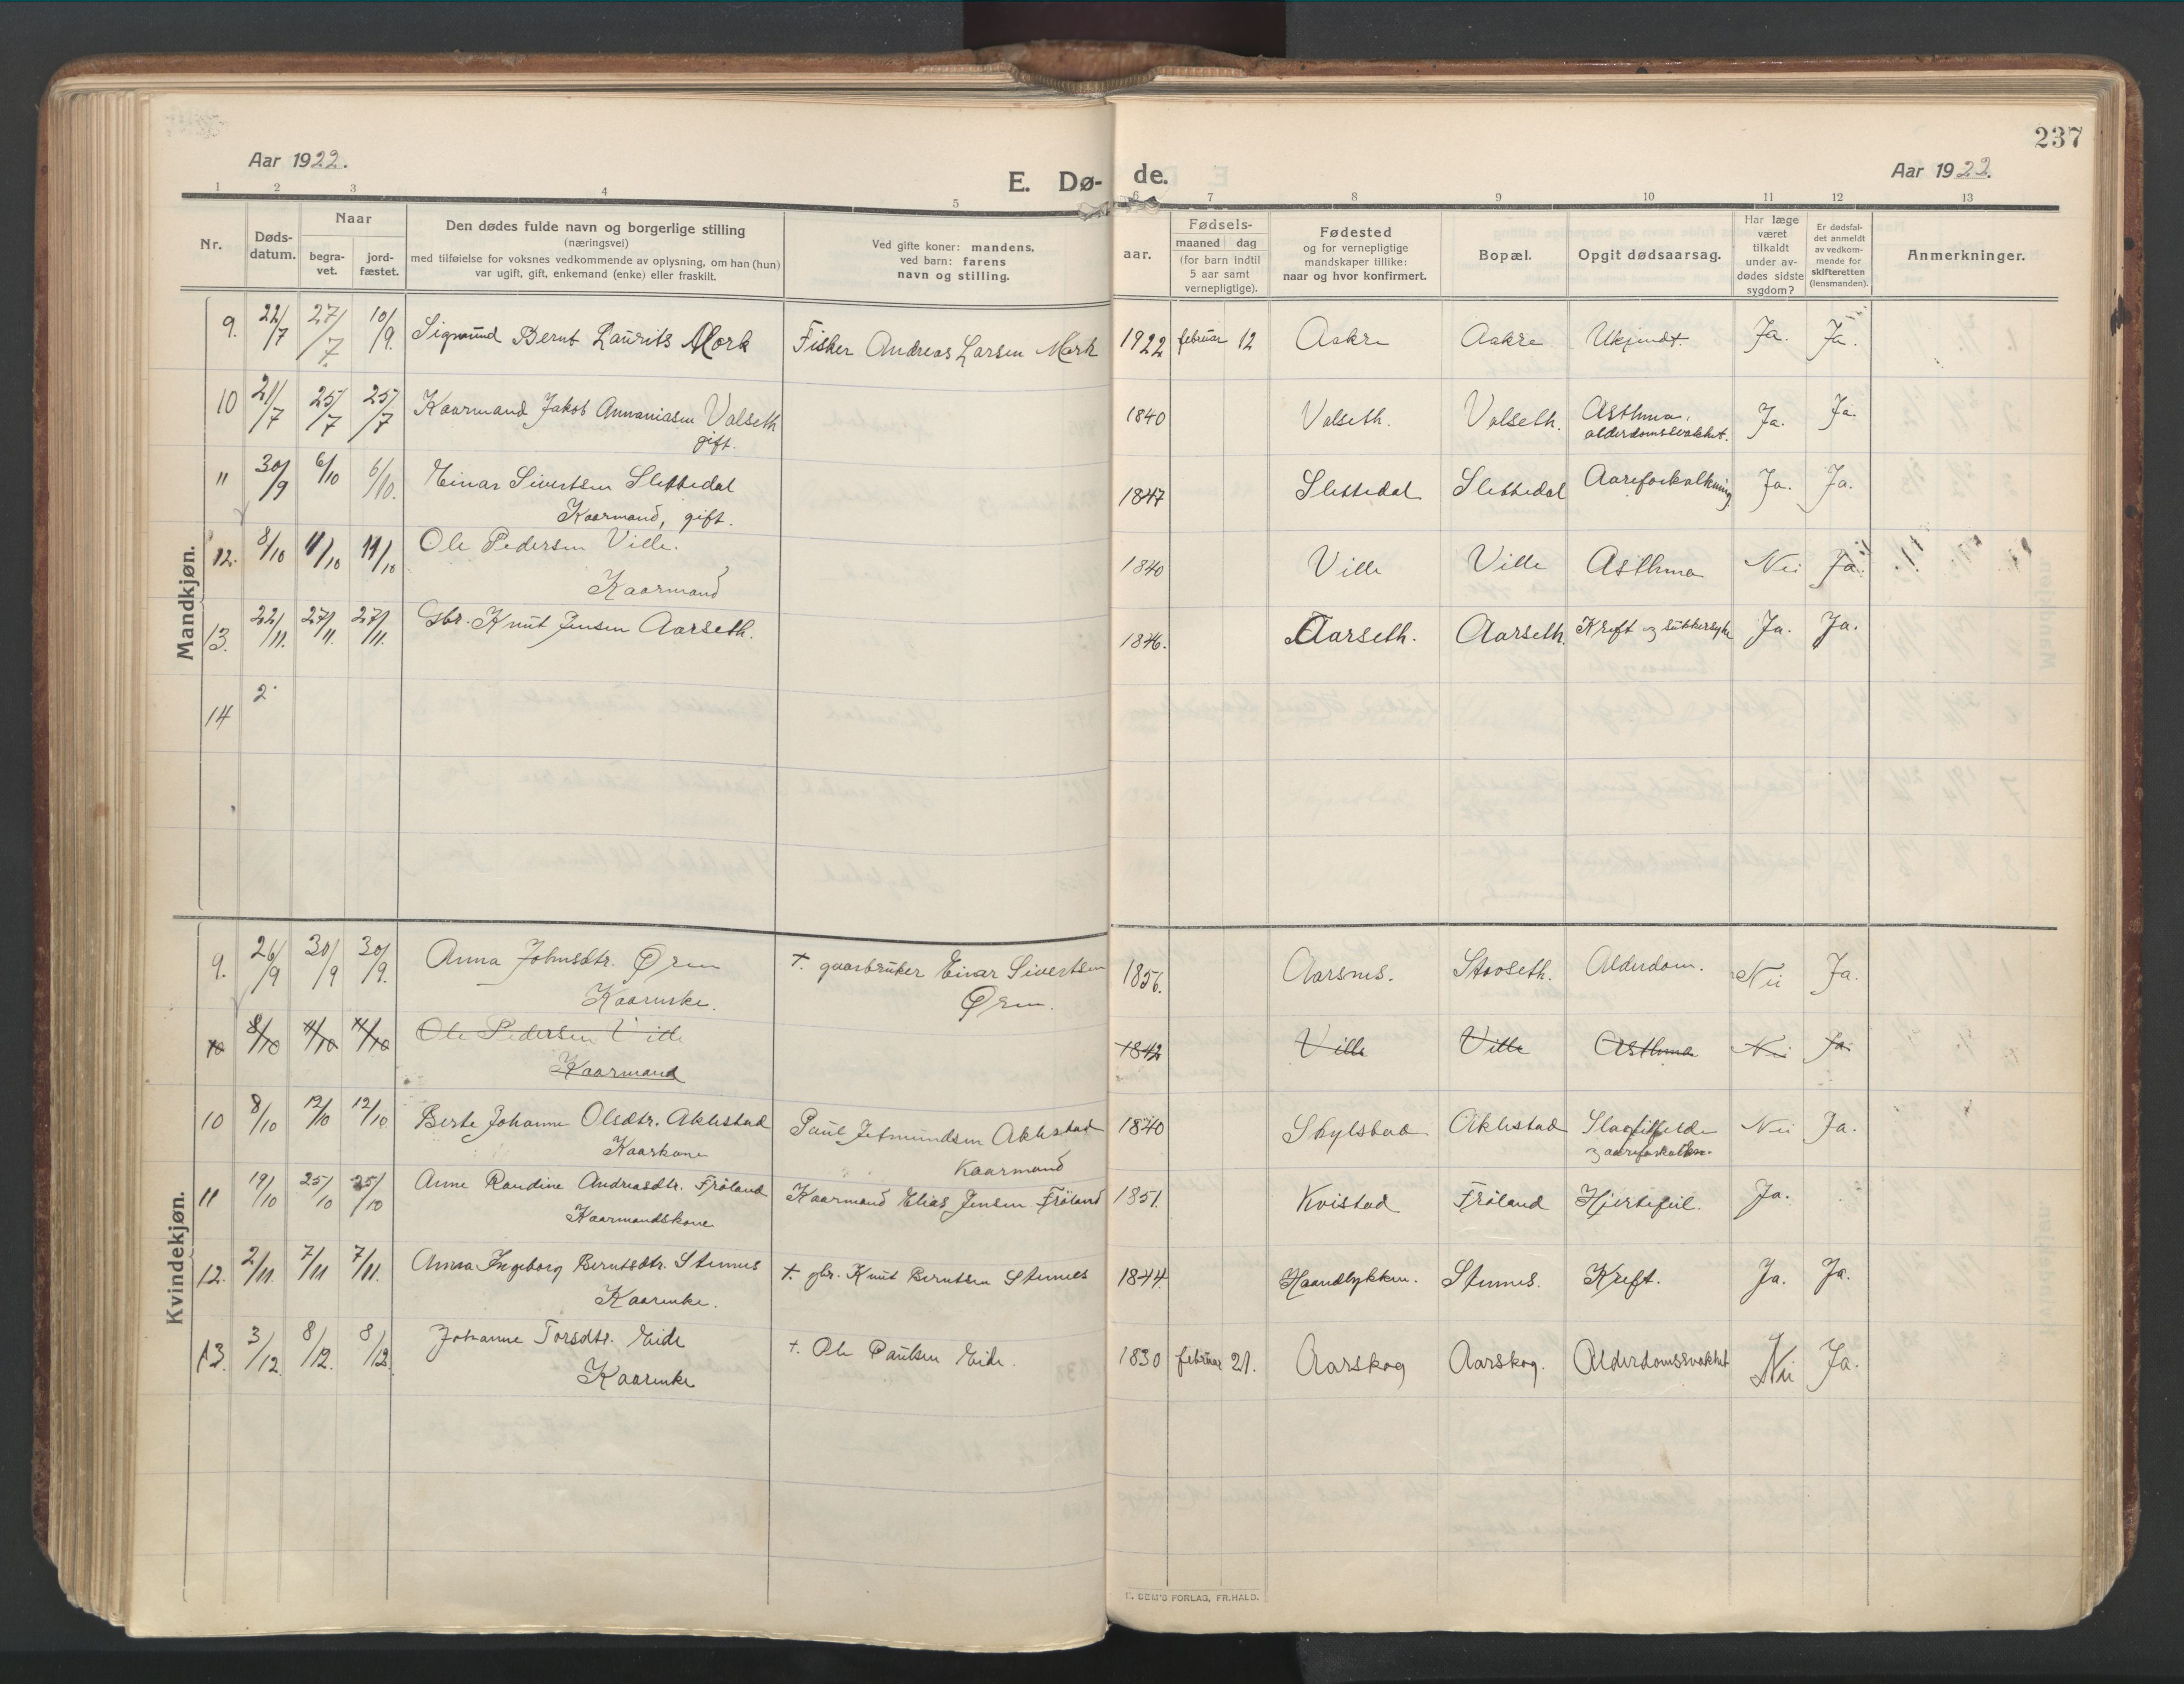 237
Aar 1922.
Aar 1922.
E. Dø- de.
1 2 3 4 5 6 7 8 9 10 11 12 13
Nr.
Døds-
datum.
Naar
begra-
vet.
jord-
fæstet.
Den dødes fulde navn og borgerlige stilling
(næringsvei)
med tilføielse for voksnes vedkommende av oplysning, om han (hun)
var ugift, gift, enkemand (enke) eller fraskilt.
Ved gifte koner: mandens,
ved barn: farens
navn og stilling.
aar.
Fødsels-
maaned dag
(for barn indtil
5 aar samt
vernepligtige).
Fødested
og for vernepligtige
mandskaper tillike:
naar og hvor konfirmert.
Bopæl.
Opgit dødsaarsag.
Har læge
været
tilkaldt
under av-
dødes sidste
sygdom?
Er dødsfal-
det anmeldt
av vedkom-
mende for
skifteretten
(lensmanden).
Anmerkninger.
Mandkjøn.
9. 22/7 27/7 10/9. Sigmund Bernt Laurits Mork Fisker Andreas Larsen Mork 1922 februar 12 Aakre Aakre Ukjendt. Ja. Ja.
10 21/7 25/7 25/7 Kaarmand Jakob Annaniasen Valseth 1840 Valseth. Valseth. Asthma, Ja. Ja.
gift. alderdomssvakhet.
11 30/9 6/10 6/10. Einar Sivertsen Slettedal 1847 Slettedal Slettedal Aareforkalkning Ja. Ja.
Kaarmand, gift.
12. 8/10 11/10 11/10 Ole Pedersen Ville. 1840 Ville Ville Asthma Nei Ja.
Kaarmand
13. 22/11. 27/11. 27/11. Gbr. Knut Jensen Aarseth. 1846. Aarseth. Aarseth. Kreft og sukkersyke Ja. Ja.
14 2
Kvindekjøn.
9. 26/9 30/9 30/9. Anna Johnsdtr. Øren †. gaarbruker Einar Sivertsen 1856. Aarsnes. Storseth. Alderdom. Nei Ja.
Kaarenke. Øren.
10 8/10 11/10 11/10 Ole Pedersen Ville 1842 Ville Ville Asthma Nei Ja
Kaarmand
10 8/10 12/10 12/10 Berte Johanne Olsdtr. Aklestad Paul Jetmundsen Aklestad 1840 Skylstad Aklestad Slagtilfelde Nei Ja.
Kaarkone Kaarmand og aareforkalkn.
11 19/10 25/10 25/10 Anne Randine Andreasdtr. Frøland Kaarmand Elias Jensen Frøland 1851. Kvistad Frøland Hjertefeil. Ja.
Kaarmandskone
12. 2/11. 7/11 7/11. Anna Ingeborg Berntsdtr. Stennes †. gbr. Knut Berntsen Stennes 1844 Haandlykken. Stennes. Kreft. Ja. Ja.
Kaarenke.
13. 3/12. 8/12. 8/12. Johanne Torsdtr. Eide †. Ole Paulsen Eide. 1830 februar 21. Aarskog Aarskog. Alderdomssvakhet Nei Ja.
Kaarenke
SEM'S FORLAG, FR.HALD.